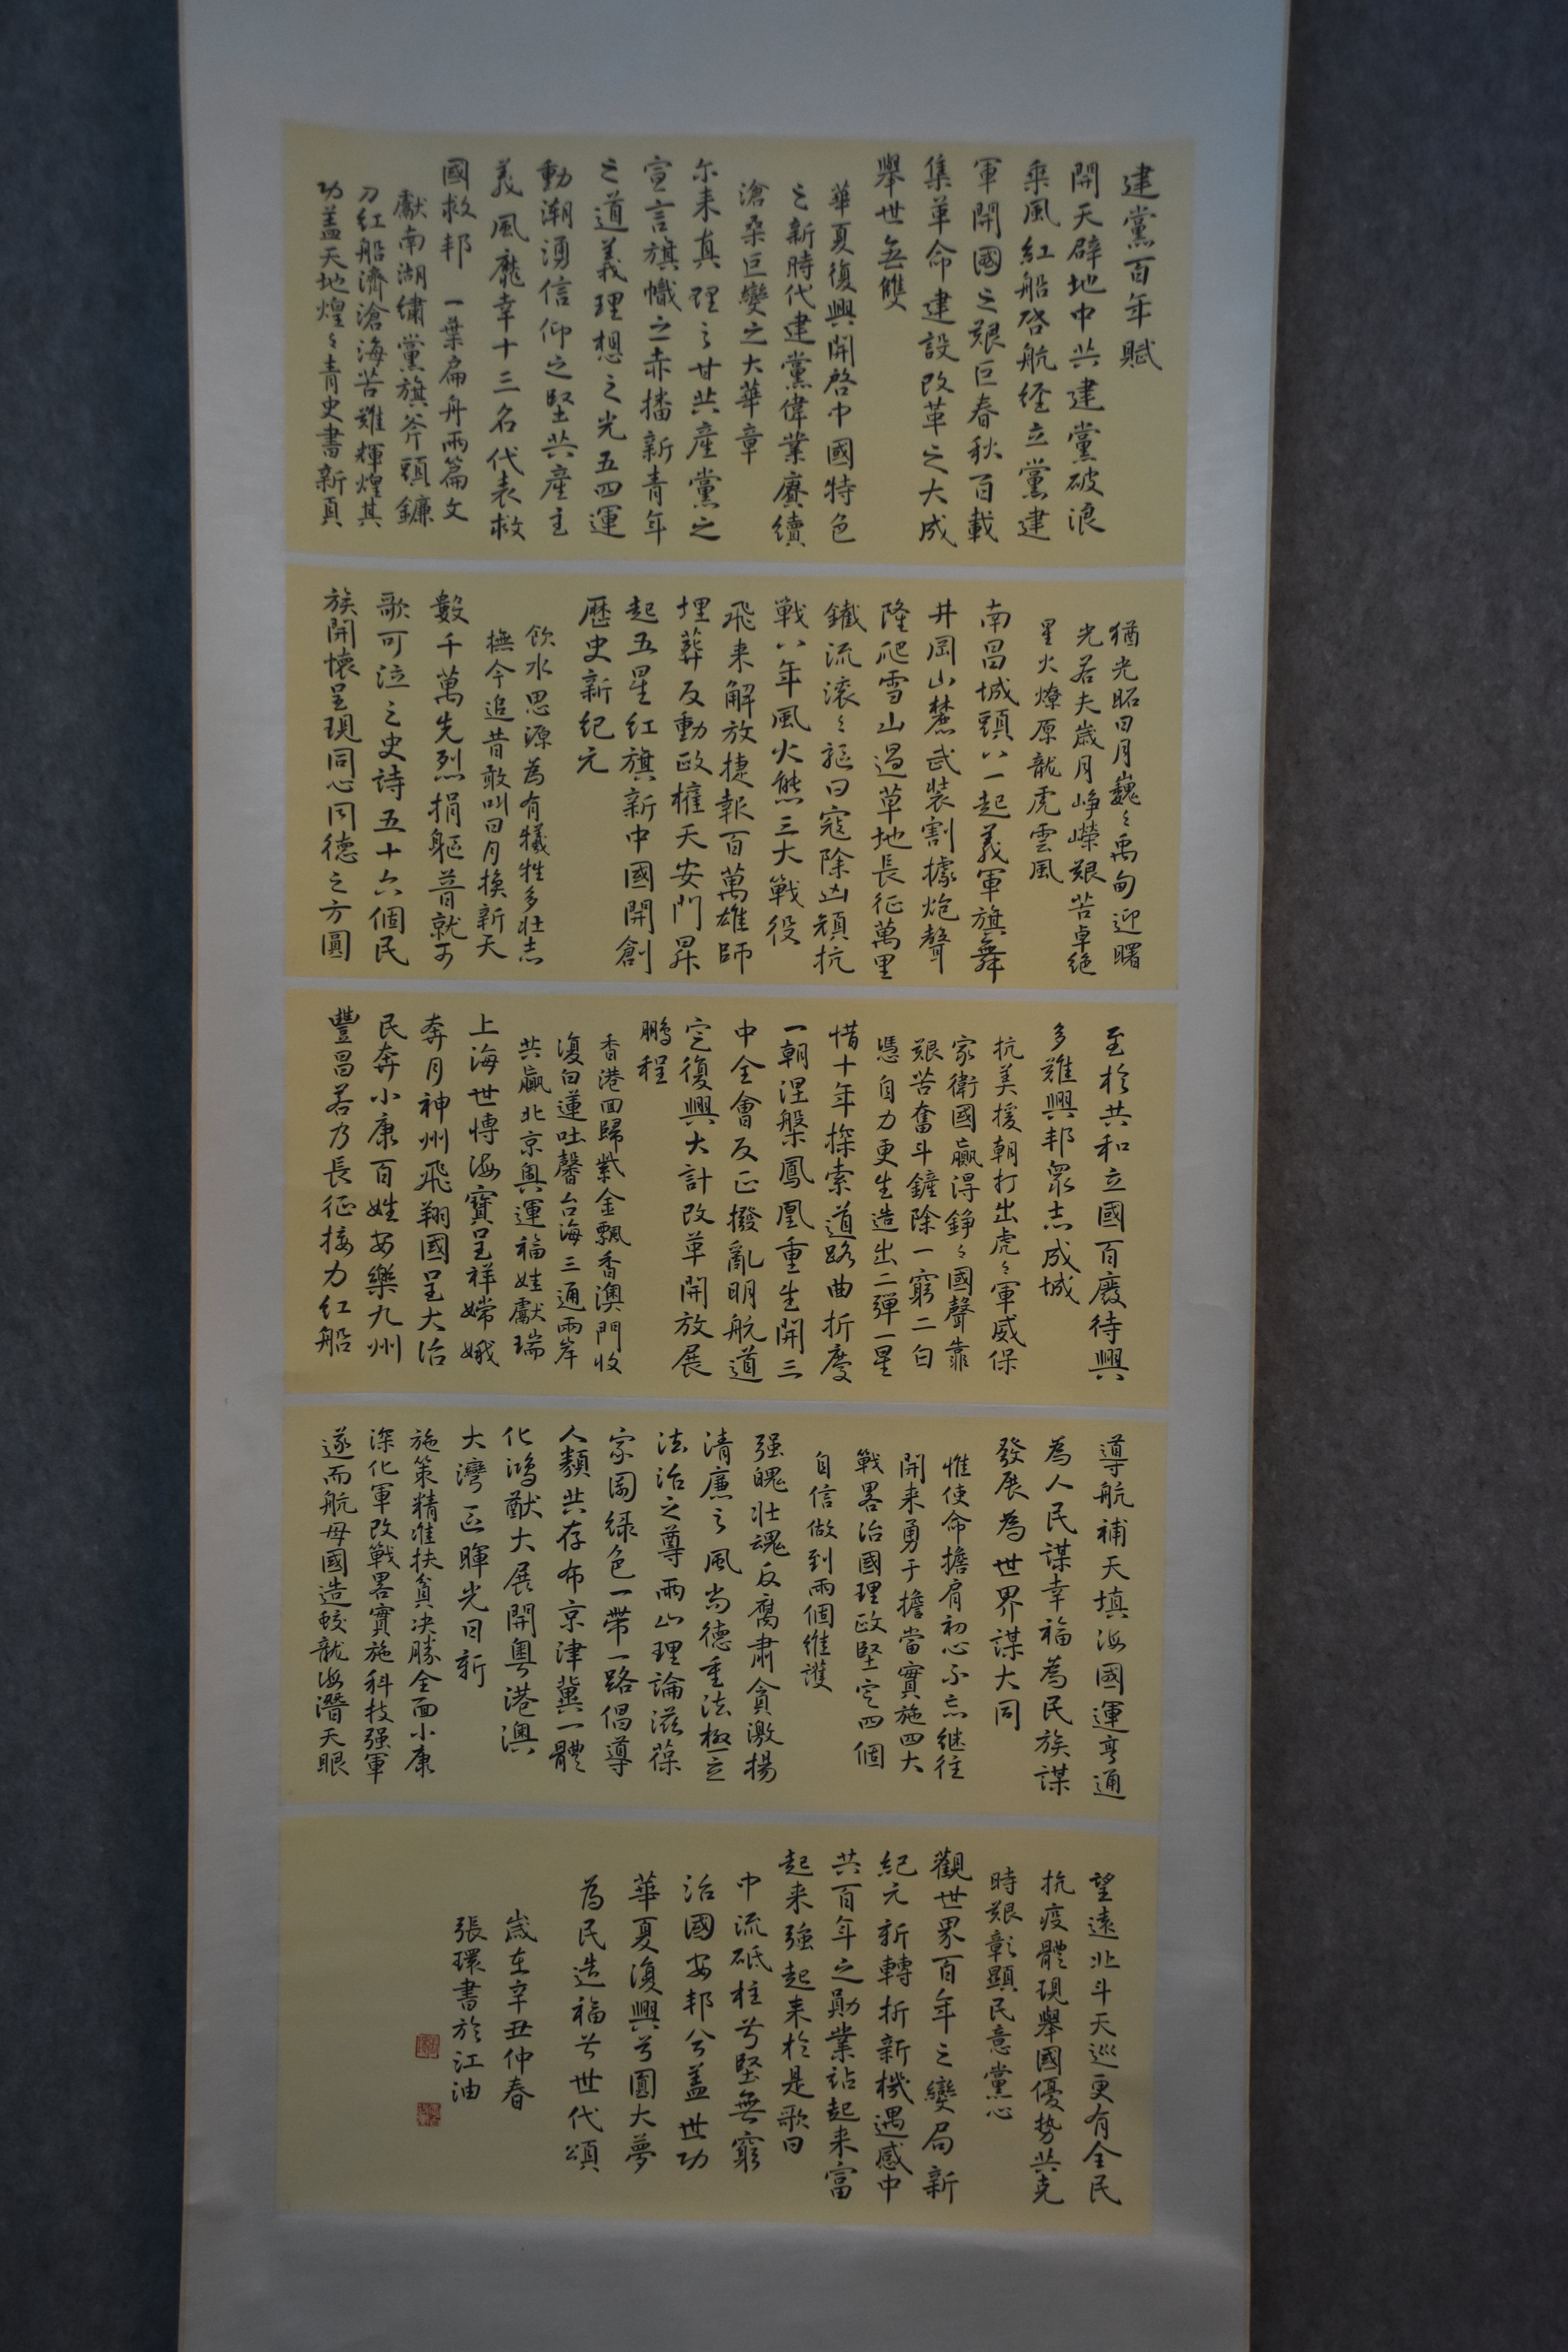 建黨百年賦
開天辟地中共建黨破浪
乘風紅船啓航經立黨建
軍開國之艱巨春秋百載
集革命建設改革之大成
舉世無雙
華夏復興開啓中國特色
之新時代建黨偉業賡續
滄桑巨變之大華章
尔来真理之甘共產黨之
宣言旗幟之赤播新青年
之道義理想之光五四運
動潮湧信仰之堅共產主
義風龐幸十三名代表救
國救邦 一葉扁舟兩篇文
獻南湖繡黨旗斧頭鐮
刀紅船濟滄海苦難輝煌其
功蓋天地煌々青史書新頁
猶光昭日月巍々禹甸迎曙
光若夫歲月崢嶸艱苦卓絶
星火燎原龍虎雲風
南昌城頭八一起義軍旗舞
井岡山麓武裝割據炮聲
隆爬雪山過草地長征萬里
鐵流滚々驅日寇除凶頑抗
戰八年風火熊三大戰役
飛来解放捷報百萬雄師
埋葬反動政權天安門昇
起五星紅旗新中國開創
歷史新紀元
飲水思源為有犧牲多壯志
撫今追昔敢叫日月換新天
數千萬先烈捐軀普就可
歌可泣之史詩五十六個民
族開懷呈現同心同德之方圓
至於共和立國百廢待興
多難興邦衆志成城
抗美援朝打出虎々軍威保
家衛國贏得錚々國聲靠
艱苦奮斗鏟除一窮二白
憑自力更生造出二彈一星
惜十年探索道路曲折慶
一朝涅槃鳳凰重生開三
中全會反正撥亂明航道
定復興大計改革開放展
鵬程
香港回歸紫金飄香澳門收
復白蓮吐馨台海三通兩岸
共贏北京奧運福娃獻瑞
上海世博海寶呈祥嫦娥
奔月神州飛翔國呈大治
民奔小康百姓安樂九州
豐昌若乃長征接力紅船
導航補天填海國運亨通
為人民謀幸福為民族謀
發展為世界謀大同
惟使命擔肩初心不忘継往
開来勇于擔當實施四大
戰畧治國理政堅定四個
自信做到兩個維護
强魄壯魂反腐肅貪激揚
清廉之風尚德重法樹立
法治之尊兩山理論滋葆
家園緑色一帶一路倡導
人類共存布京津冀一體
化鴻猷大展開粵港澳
大灣區暉光日新
施策精准扶貧决勝全面小康
深化軍改戰畧實施科技强軍
遂而航母國造蛟龍海潛天眼
望遠北斗天巡更有全民
抗疫體現舉國優势共克
時艱彰顯民意黨心
觀世界百年之變局新
紀元新轉折新機遇感中
共百年之勛業站起来富
起来强起来於是歌曰
中流砥柱兮堅無窮
治國安邦兮蓋世功
華夏復興兮圓大夢
為民造福兮世代頌
歲在辛丑仲春
張環書於江油